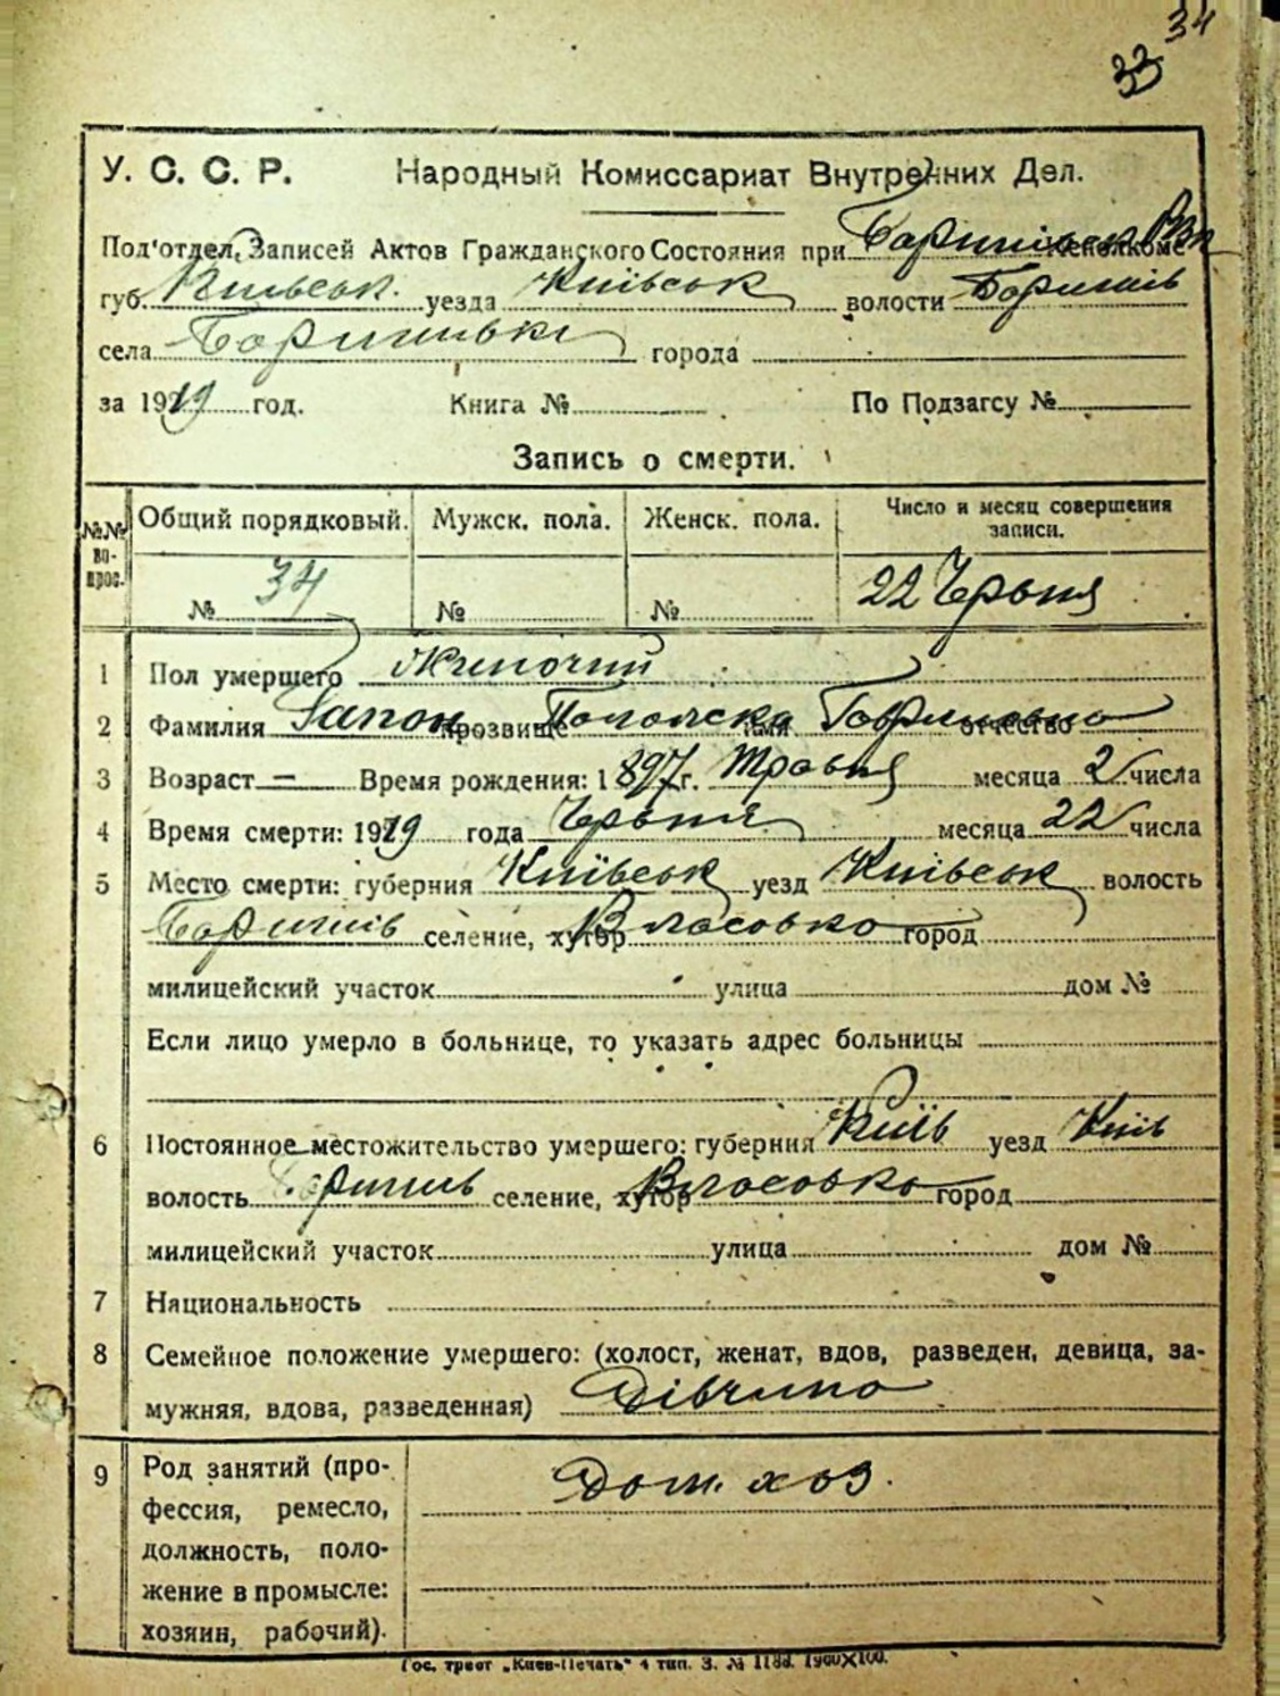 34
33
У. С. С. Р. Народный Комиссариат Внутренних Дел.
Под'отдел Записей Актов Гражданского Состояния при исполкоме
губ. Київськ. уезда Київськ волости Боришів
села города
за 1919 год. Книга № По Подзагсу №
Запись о смерти.
№№ во-прос. Общий порядковый. Мужск. пола. Женск. пола. Число и месяц совершения записи.
№ 34 № № 22 Червня
1 Пол умершего Жиночий
2 Фамилия Сапон прозвище имя Гавриловна отчество
3 Возраст — Время рождения: 1897 г. Травня месяца 2 числа
4 Время смерти: 1919 года Червня месяца 22 числа
5 Место смерти: губерния Київськ уезд Київськ волость
Боришів селение, хутор Власовка город
милицейский участок улица дом №
Если лицо умерло в больнице, то указать адрес больницы
6 Постоянное местожительство умершего: губерния Київ уезд Київ
волость селение, хутор Власовка город
милицейский участок улица дом №
7 Национальность
8 Семейное положение умершего: (холост, женат, вдов, разведен, девица, за-
мужняя, вдова, разведенная) Дівчина
9 Род занятий (про-
фессия, ремесло,
должность, поло-
жение в промысле:
хозяин, рабочий).
Дом. хоз.
Гос. трест „Киев-Печать" 4 тип. З. №